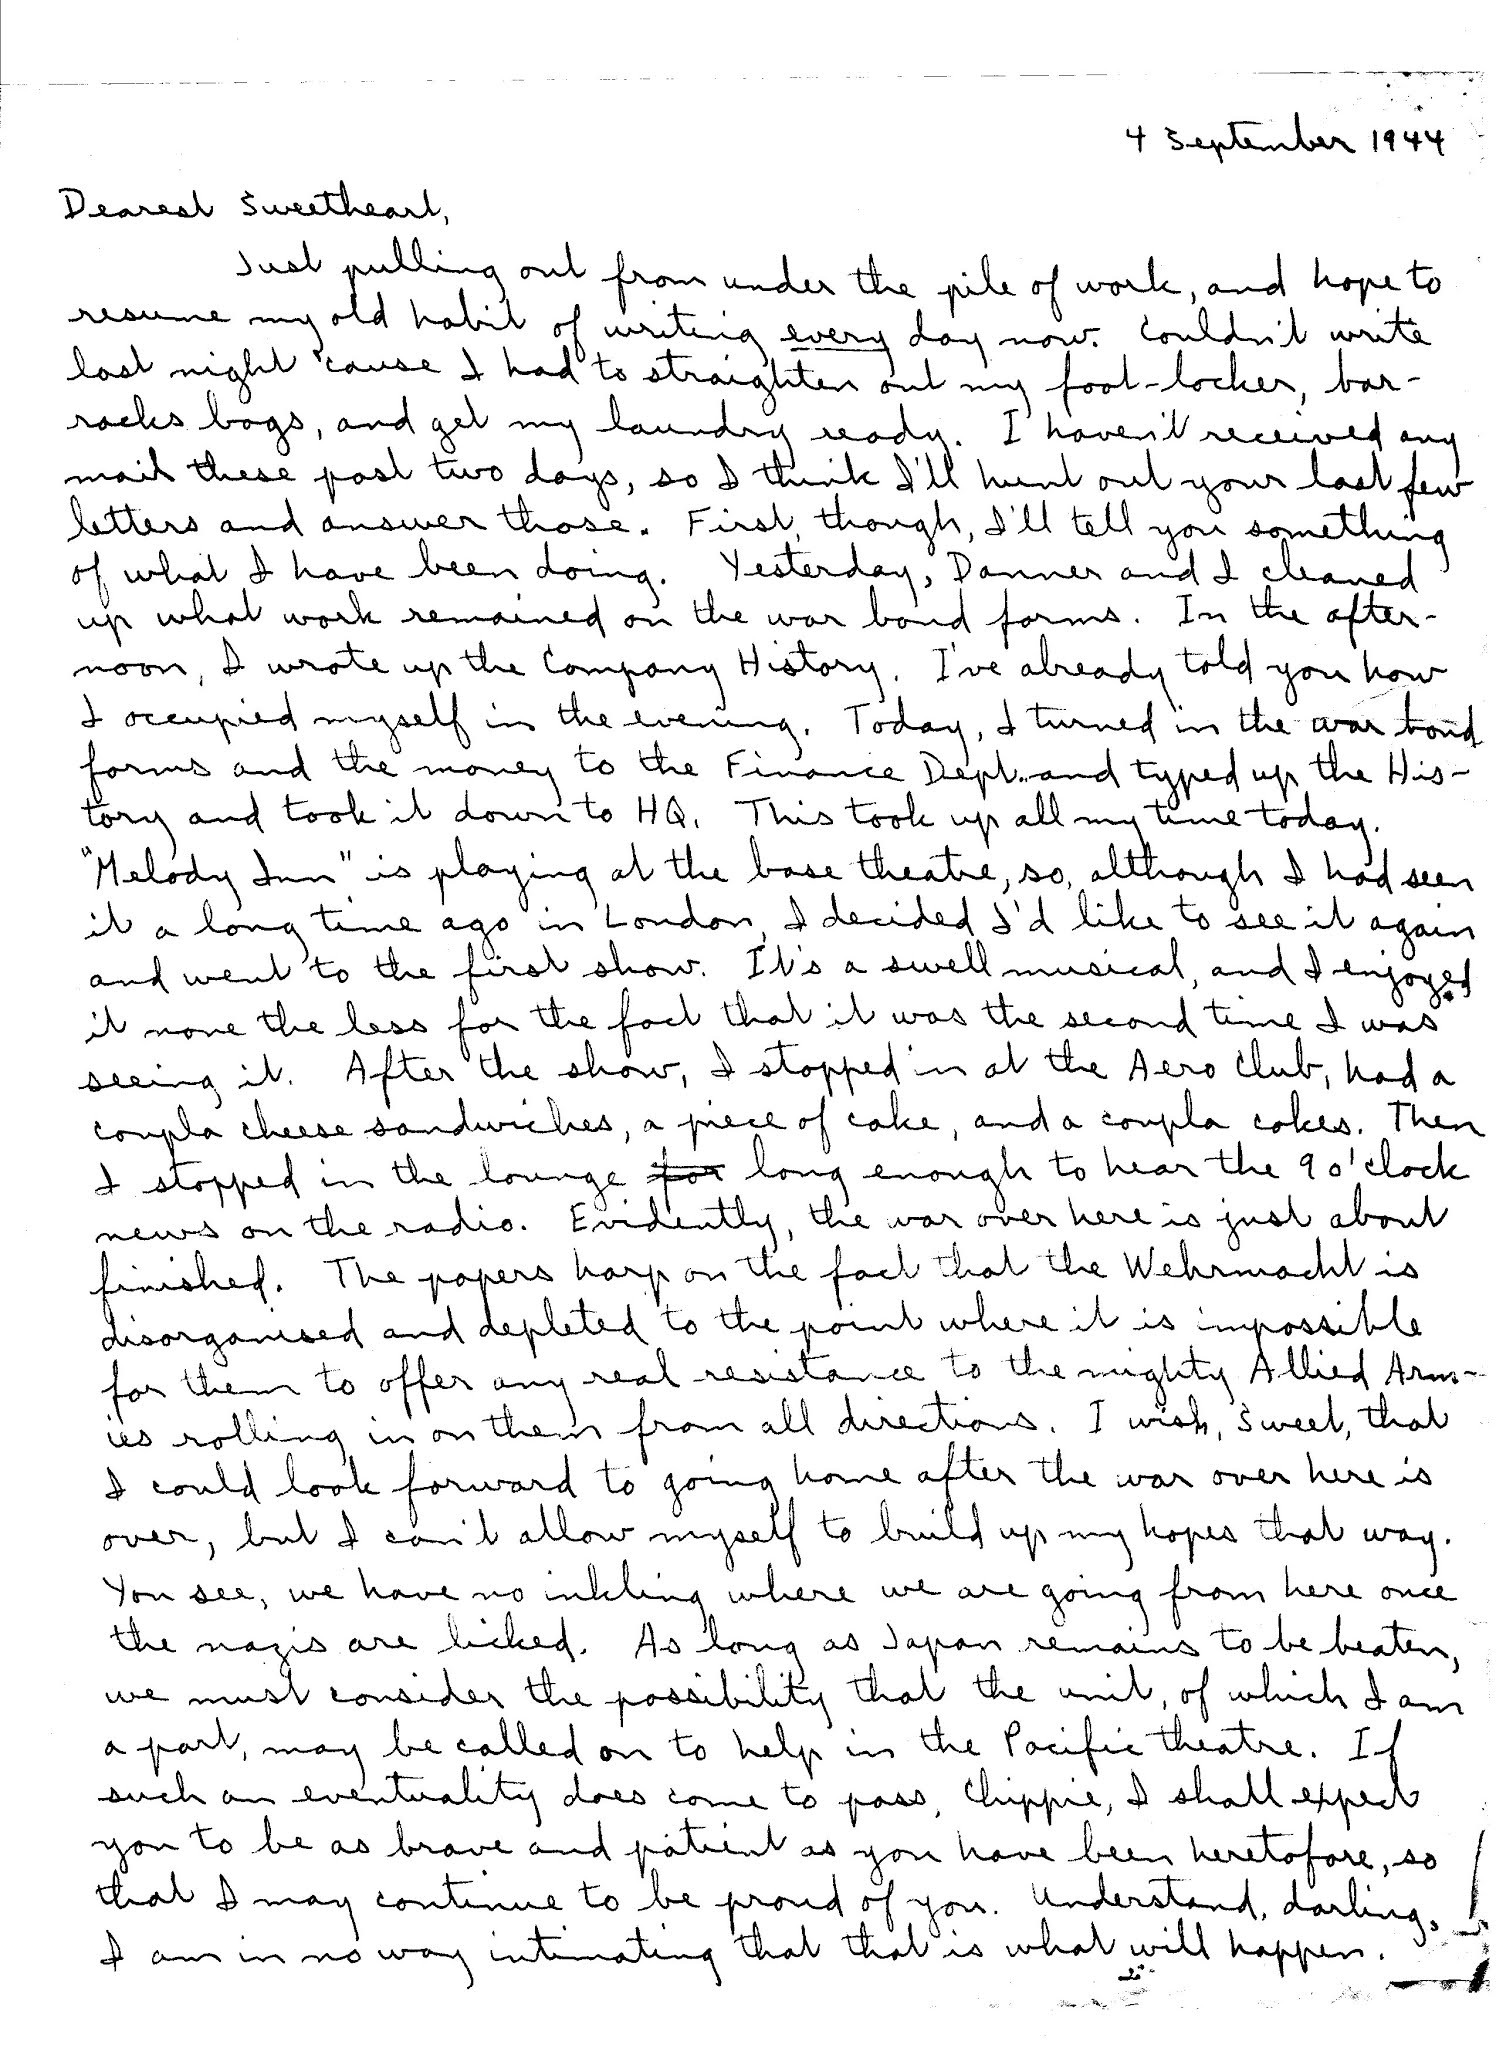 4 September 1944
Dearest Sweetheart,
Just pulling out from under the pile of work, and hope to
resume my old habit of writing every day now. Couldn't write
last night 'cause I had to straighten out my foot-locker, bar-
racks bags, and get my laundry ready. I haven't received any
mail these past two days, so I think I'll hunt out your last few
letters and answer those. First, though, I'll tell you something
of what I have been doing. Yesterday, Danner and I cleaned
up what work remained on the war bond forms. In the after-
noon, I wrote up the Company History. I've already told you how
I occupied myself in the evening. Today, I turned in the war bond
forms and the money to the Finance Dept. and typed up the His-
tory and took it down to HQ. This took up all my time today.
"Melody Inn" is playing at the base theatre, so, although I had seen
it a long time ago in London, I decided I'd like to see it again
and went to the first show. It's a swell musical, and I enjoyed
it none the less for the fact that it was the second time I was
seeing it. After the show, I stopped in at the Aero Club, had a
coupla cheese sandwiches, a piece of cake, and a coupla cokes. Then
I stopped in the lounge for long enough to hear the 9 o'clock
news on the radio. Evidently, the war over here is just about
finished. The papers harp on the fact that the Wehrmacht is
disorganised and depleted to the point where it is impossible
for them to offer any real resistance to the mighty Allied Arm-
ies rolling in on them from all directions. I wish, Sweet, that
I could look forward to going home after the war over here is
over, but I can't allow myself to build up my hopes that way.
You see, we have no inkling where we are going from here once
the nazis are licked. As long as Japan remains to be beaten,
we must consider the possibility that the unit, of which I am
a part, may be called on to help in the Pacific theatre. If
such an eventuality does come to pass, Chippie, I shall expect
you to be as brave and patient as you have been heretofore, so
that I may continue to be proud of you. Understand, darling,
I am in no way intimating that that is what will happen.